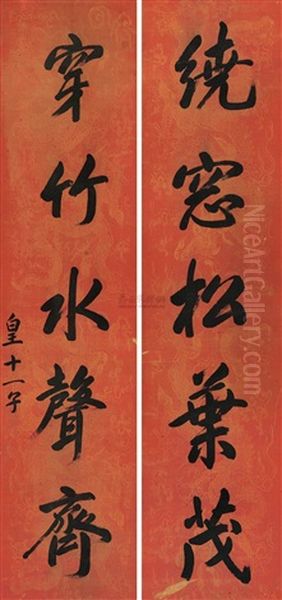 繞窓松葉茂
穿竹水聲齊
皇十一子
NiceArtGallery.com